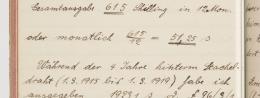 Gesamtausgabe 615 Shilling in 12 Mon.
oder monatlich 615/12 = 51,25 s
Während der 4 Jahre hinterm Stachel-
draht (1.3.1915 bis 1.3.1919) habe ich
ausgegeben